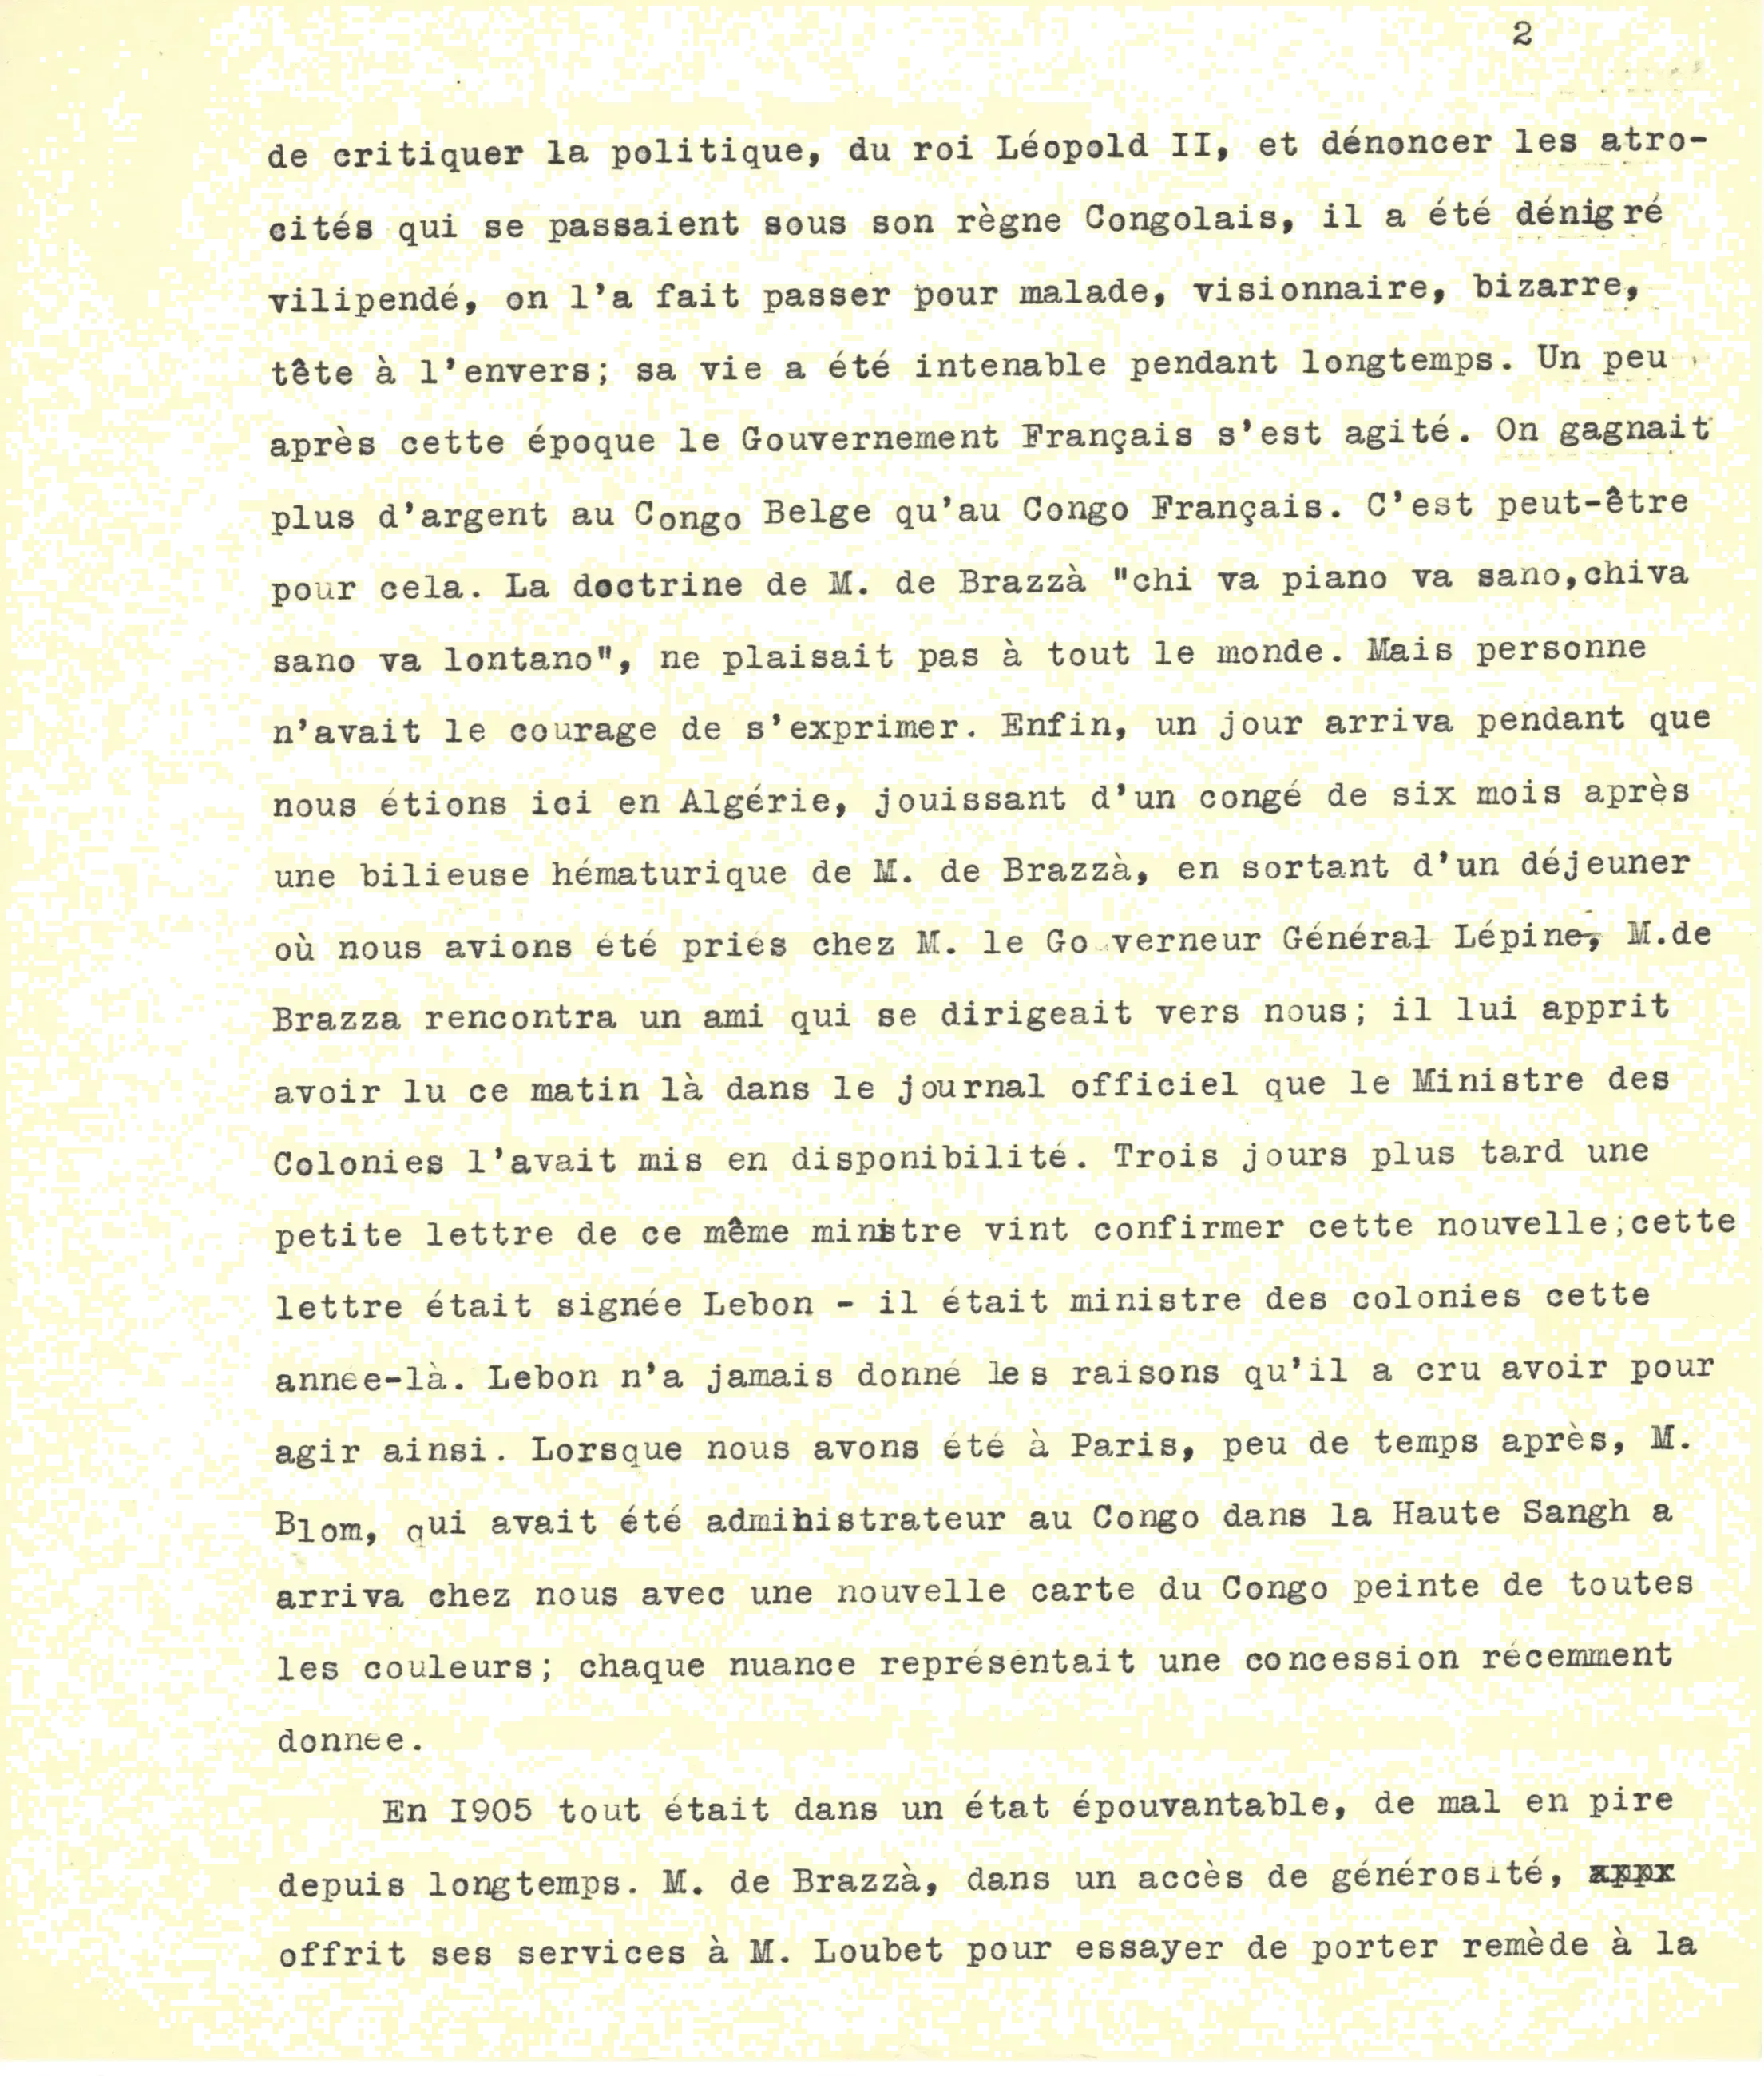 2
de critiquer la politique, du roi Léopold II, et dénoncer les atro-
cités qui se passaient sous son règne Congolais, il a été dénigré
vilipendé, on l'a fait passer pour malade, visionnaire, bizarre,
tête à l'envers; sa vie a été intenable pendant longtemps. Un peu
après cette époque le Gouvernement Français s'est agité. On gagnait
plus d'argent au Congo Belge qu'au Congo Français. C'est peut-être
pour cela. La doctrine de M. de Brazzà "chi va piano va sano,chiva
sano va lontano", ne plaisait pas à tout le monde. Mais personne
n'avait le courage de s'exprimer. Enfin, un jour arriva pendant que
nous étions ici en Algérie, jouissant d'un congé de six mois après
une bilieuse hématurique de M. de Brazzà, en sortant d'un déjeuner
où nous avions été priés chez M. le Go verneur Général Lépine, M.de
Brazza rencontra un ami qui se dirigeait vers nous; il lui apprit
avoir lu ce matin là dans le journal officiel que le Ministre des
Colonies l'avait mis en disponibilité. Trois jours plus tard une
petite lettre de ce même ministre vint confirmer cette nouvelle;cette
lettre était signée Lebon - il était ministre des colonies cette
année-là. Lebon n'a jamais donné les raisons qu'il a cru avoir pour
agir ainsi. Lorsque nous avons été à Paris, peu de temps après, M.
Blom, qui avait été administrateur au Congo dans la Haute Sangh a
arriva chez nous avec une nouvelle carte du Congo peinte de toutes
les couleurs; chaque nuance représentait une concession récemment
donnée.
En I905 tout était dans un état épouvantable, de mal en pire
depuis longtemps. M. de Brazzà, dans un accès de générosité,
offrit ses services à M. Loubet pour essayer de porter remède à la